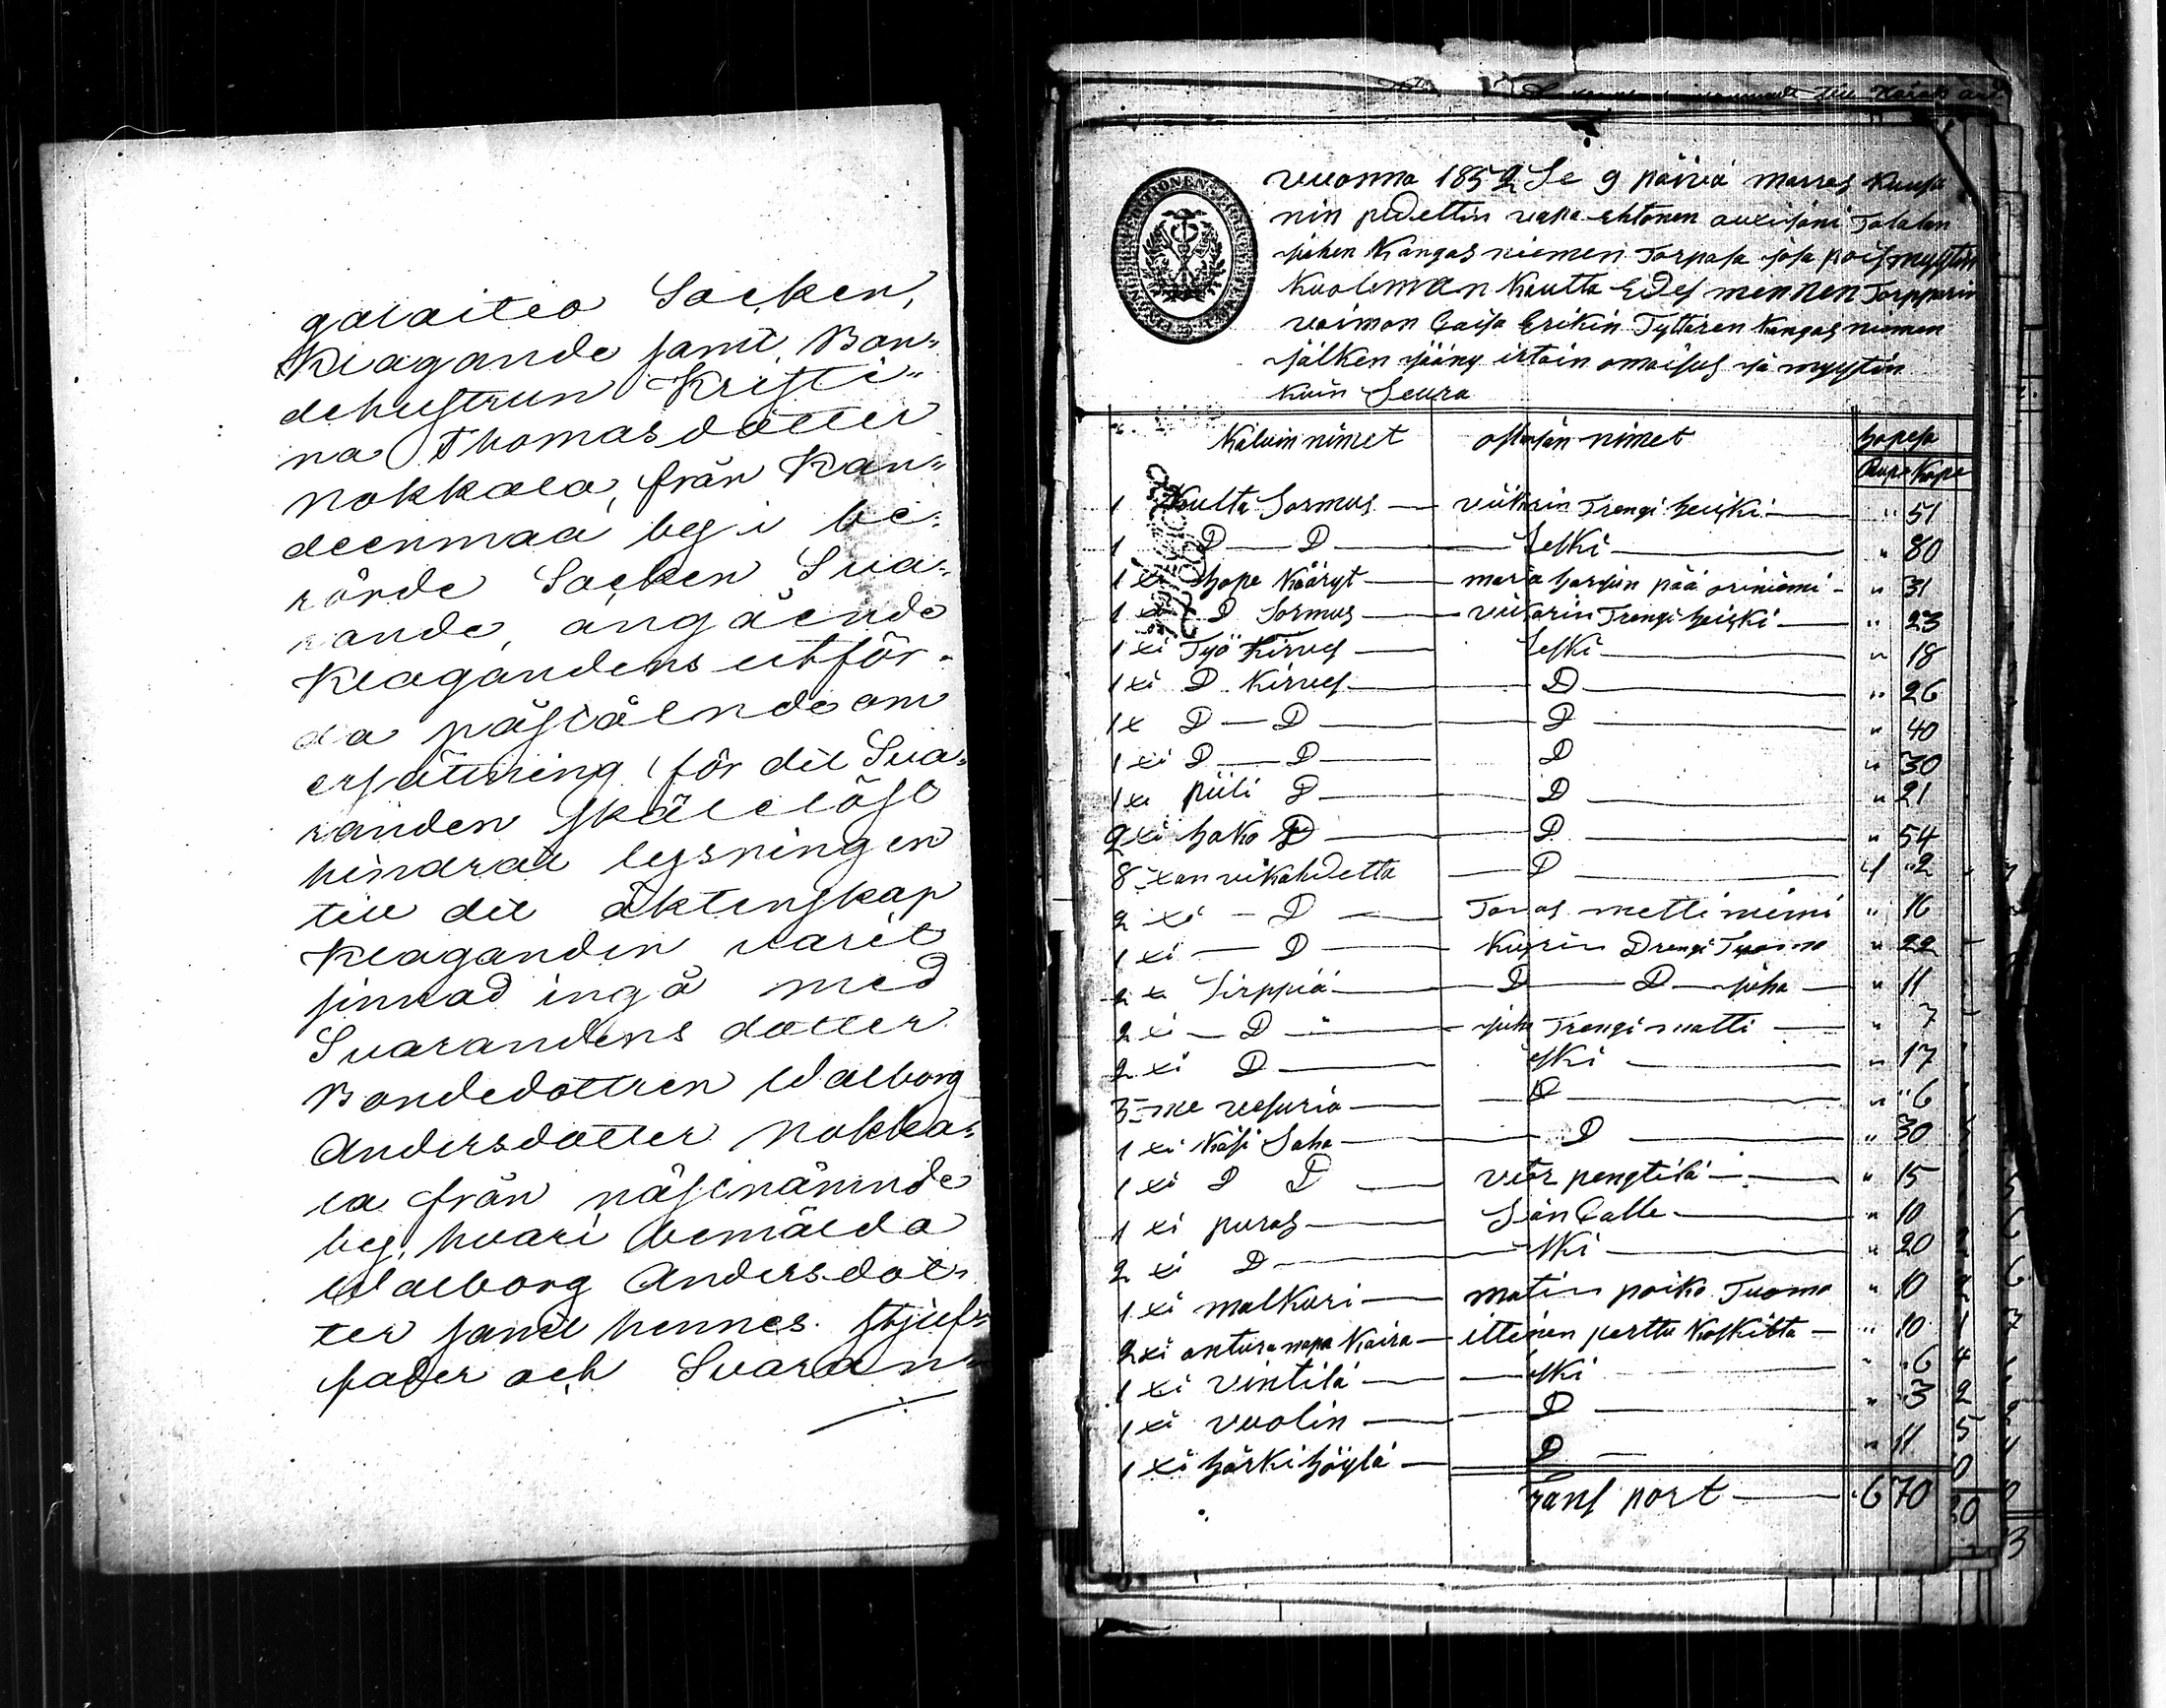 galaitio Socken,
Klagande samt Bon-
dehustrun Kristi-
na Thomasdotter
Nokkala, från Kan-
deenmaa by i be-
rörde Socken Sva-
rande, angående
Klagandens utför-
da påstående om
ersättning för det Sva-
randen skällöst
hindrat lysningen
till det äktenskap
Klaganden varit
sinnad ingå med
Svarandens dotter
Bondedottren Walborg
Andersdotter Nokka-
la från näsinämnde
by, hvari bemälda
Walborg Andersdot-
ter samt hennes stjuf-
fader och Svaran-
vuonna 1852 Se 9 päivä marras Kuusa
nin pidettin vapa-ehtonen auxisjoni Talalan
Kangasniemen Torpasa josa poismyytin
Kuoleman Kautta Edes mennen Torpparin
vaimon Caisa Erikin Tyttären Kangasniemen
jälken jääny irtain omaisus ja myytin
kuin Seura
Kaluin nimet ostajan nimet hopesa
Rupe Kope
1 Kulta Sormus — viikarin Trengi heiski — " 51
1 D — D — Selki — " 80
1 xi hopo Kääryt — maria harjun pää oriniemi — " 31
1 xi D Sormus — viikarin Trengi heiski — " 23
1 xi Työ Kirves — Selki — " 18
1 xi D Kirves — D — " 26
1 x D — D — D — " 40
1 xi D — D — D " 30
1 xi piili D — D — " 21
2 xi hako D — D — " 54
8 xan vikahdetta — D — " 2
2 xi — D — Tomas mettiniemi " 16
1 xi — D — Kuprin Drengi Tuomo " 22
2 x Sirppiä — D — D — juha — " 11
2 xi — D — juha Trengi matti — " 7
2 xi D — elki — " 17
3 me vesuria — D " 6
1 xi Käsi Saha — D — " 30
1 xi D D — vetr pengtilä — " 15
1 xi puras — Siön Calle — " 10
2 xi D — elki — " 20
1 xi malkuri — matin poika Tuomo " 10
2 xi antura napa Kaira — ettinen perttu Koskilta — " 10
1 xi vintilä — elki " 6
1 xi vuolin — D — " 3
1 xi härkihöylä — D — " 11
Transport — 6 70